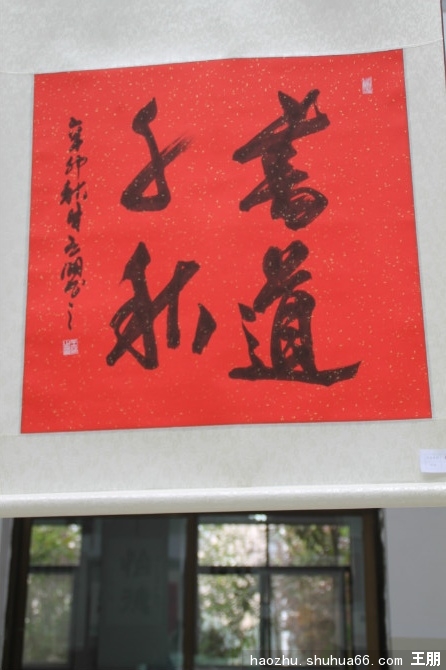 書道
千秋
辛卯秋月立開书之
haozhu.shuhua66.com 王朋